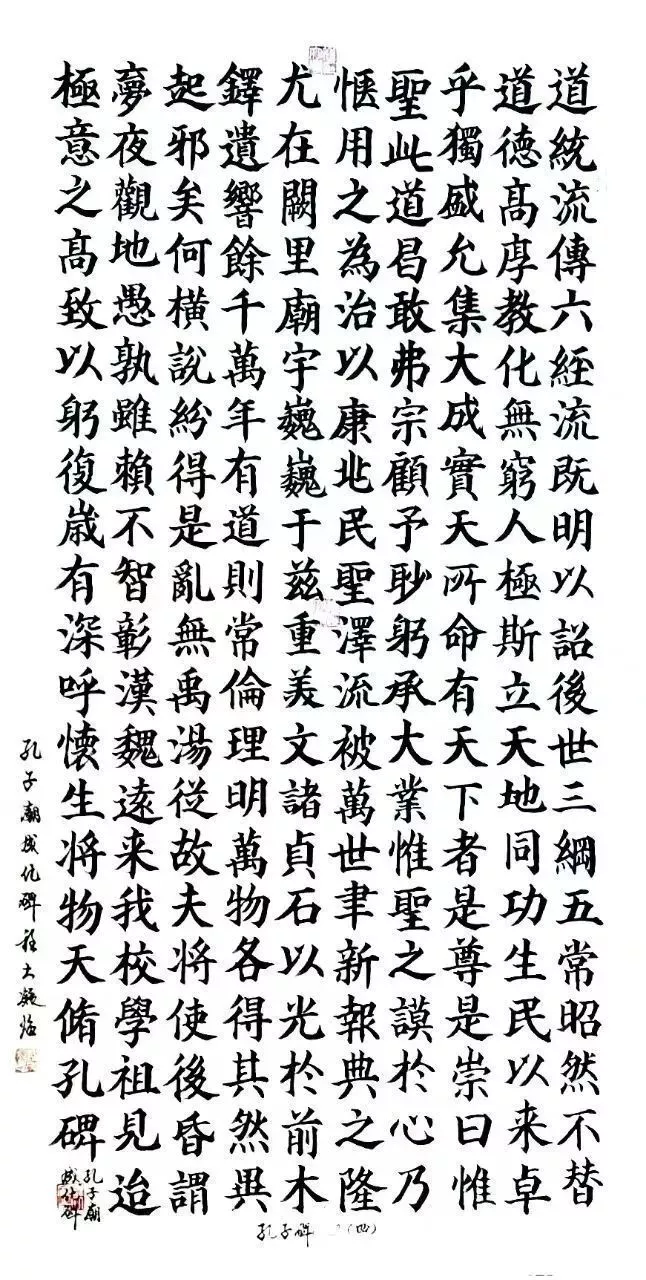 道統流傳六経流既明以詔後世三綱五常昭然不替
道德高厚教化無窮人極斯立天地同功生民以来卓
乎獨盛允集大成實天所命有天下者是尊是崇曰惟
聖此道昌敢弗宗顧予眇躬承大業惟聖之謨於心乃
愜用之為治以康兆民聖澤流被萬世聿新報典之隆
尤在闕里廟宇巍巍于兹重美文諸貞石以光於前木
鐸遺響餘千萬年有道則常倫理明萬物各得其然異
起邪矣何橫説紛得是亂無禹湯従故夫将使後昏謂
夢夜觀地愚孰雖賴不智彰漢魏遠来我校學祖見迨
極意之高致以躬復歳有深呼懷生将物天脩孔碑
孔子廟
成化碑
孔子廟成化碑
孔子碑（四）